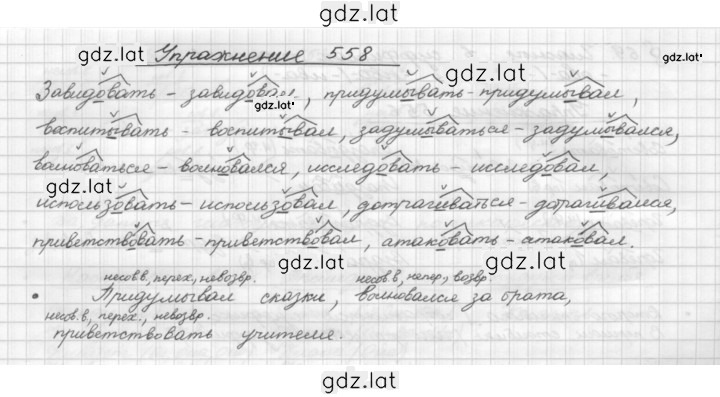 gdz.lat
Упражнение 558
gdz.lat
gdz.lat
gdz.lat
Завидовать - завидовал, придумывать - придумывал,
gdz.lat
воспитывать - воспитывал, задумываться - задумывался,
волноваться - волновался, исследовать - исследовал,
gdz.lat
использовать - использовал, дотрагиваться - дотрагивался,
приветствовать - приветствовал, атаковать - атаковал.
gdz.lat
gdz.lat
несов.в, перех, невозвр. несов.в, непер., возвр.
Придумывал сказки, волновался за брата,
несов.в, перех., невозвр.
приветствовать учителя.
gdz.lat